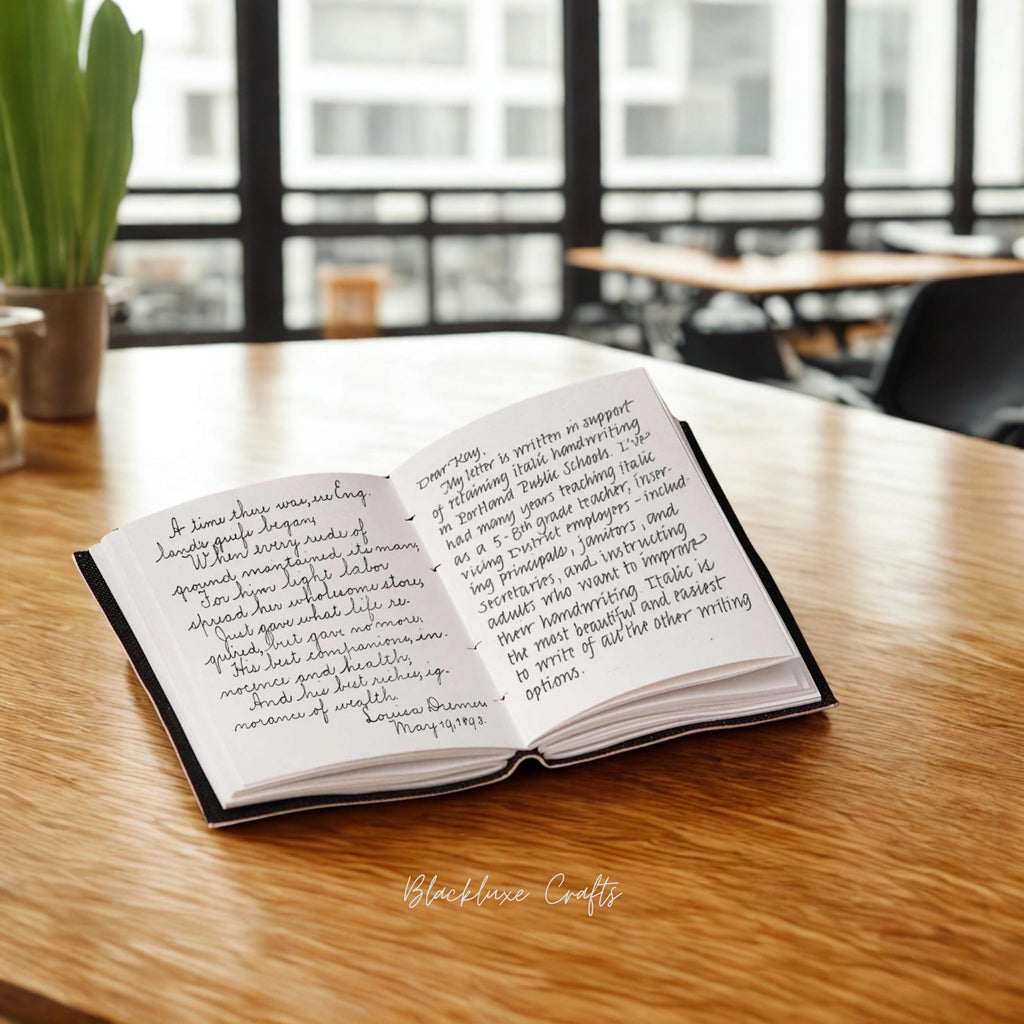 A time there was, ere Eng.
land's griefs began,
When every rude of
ground, mantained its man,
For him light labor
spread her wholesome store,
Just gave what life re.
quired, but gave no more.
His best companions, in.
nocence and health,
And his best riches, ig.
norance of wealth.
Louisa
May 19, 1898.
Dear Kay,
My letter is written in support
of retaining italic handwriting
in Portland Public Schools. I've
had many years teaching italic
as a 5-8th grade teacher, inser-
vicing District employees - includ-
ing principals, janitors, and
secretaries, and instructing
adults who want to improve
their handwriting. Italic is
the most beautiful and easiest
to write of all the other writing
options.
Blackluxe Crafts